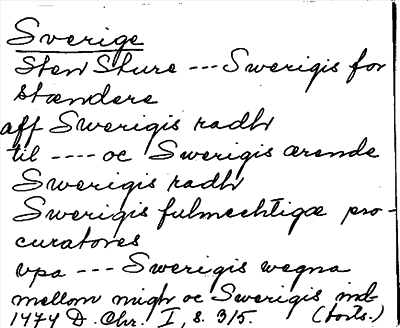 Sverige
Sten Sture --- Swerigis for
stændere
aff Swerigis radh
til ---- oc Swerigis ærende
Swerigis radh
Swerigis fulmechtigæ pro-
curatores
vpa --- Swerigis wegna
mellom migh oc Swerigis
1474 D. Chr. I, s. 315. (forts.)